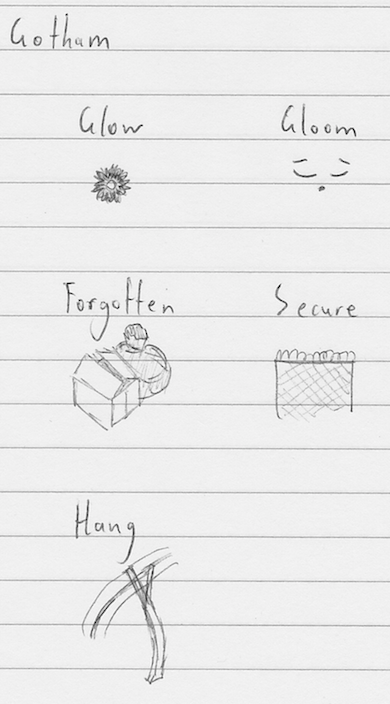 Gotham
Glow Gloom
Forgotten Secure
Hang